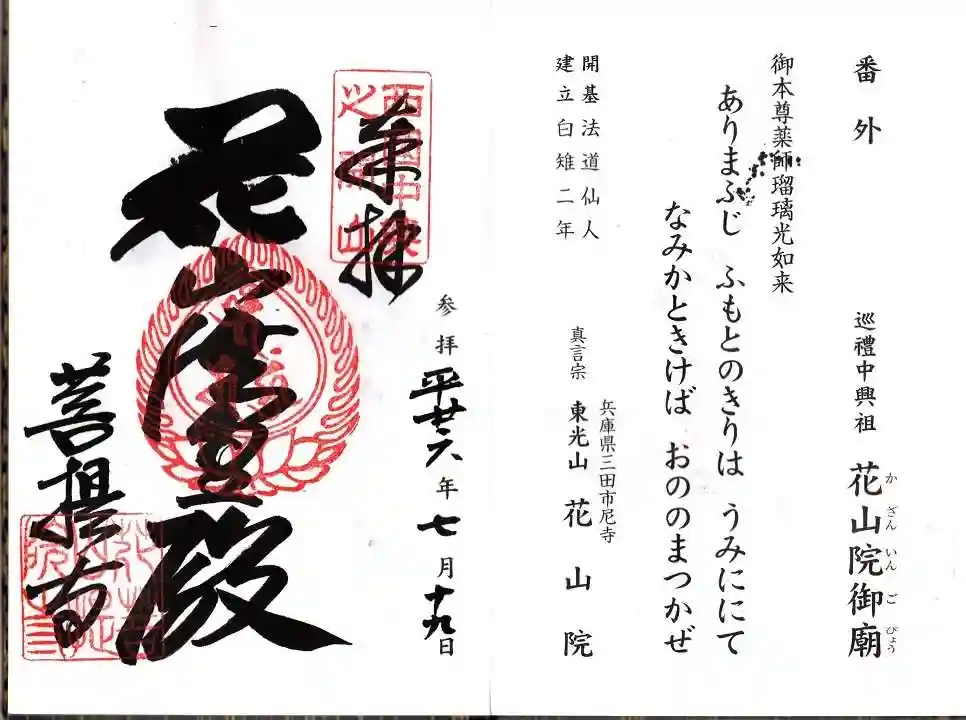 番外
巡禮中興祖 花山院御廟
かざんいんごびょう
御本尊薬師瑠璃光如来
ありまふじ ふもとのきりは うみににて
なみかときけば おののまつかぜ
開基法道仙人
建立白雉二年
兵庫県三田市尼寺
真言宗 東光山 花山院
参拝平廿六年七月十九日
奉拝
菩提寺